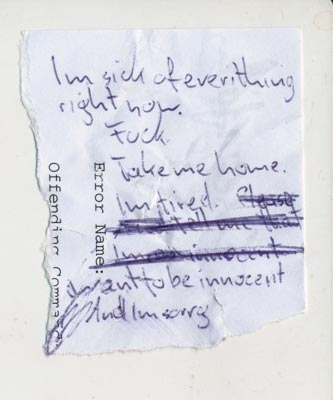 Im sick of everithing
right now.
Fuck.
Take me home.
Im tired. Please
tell me that
Im so innocent
I want to be innocent
And Im sorry
Error Name:
Offending Comma